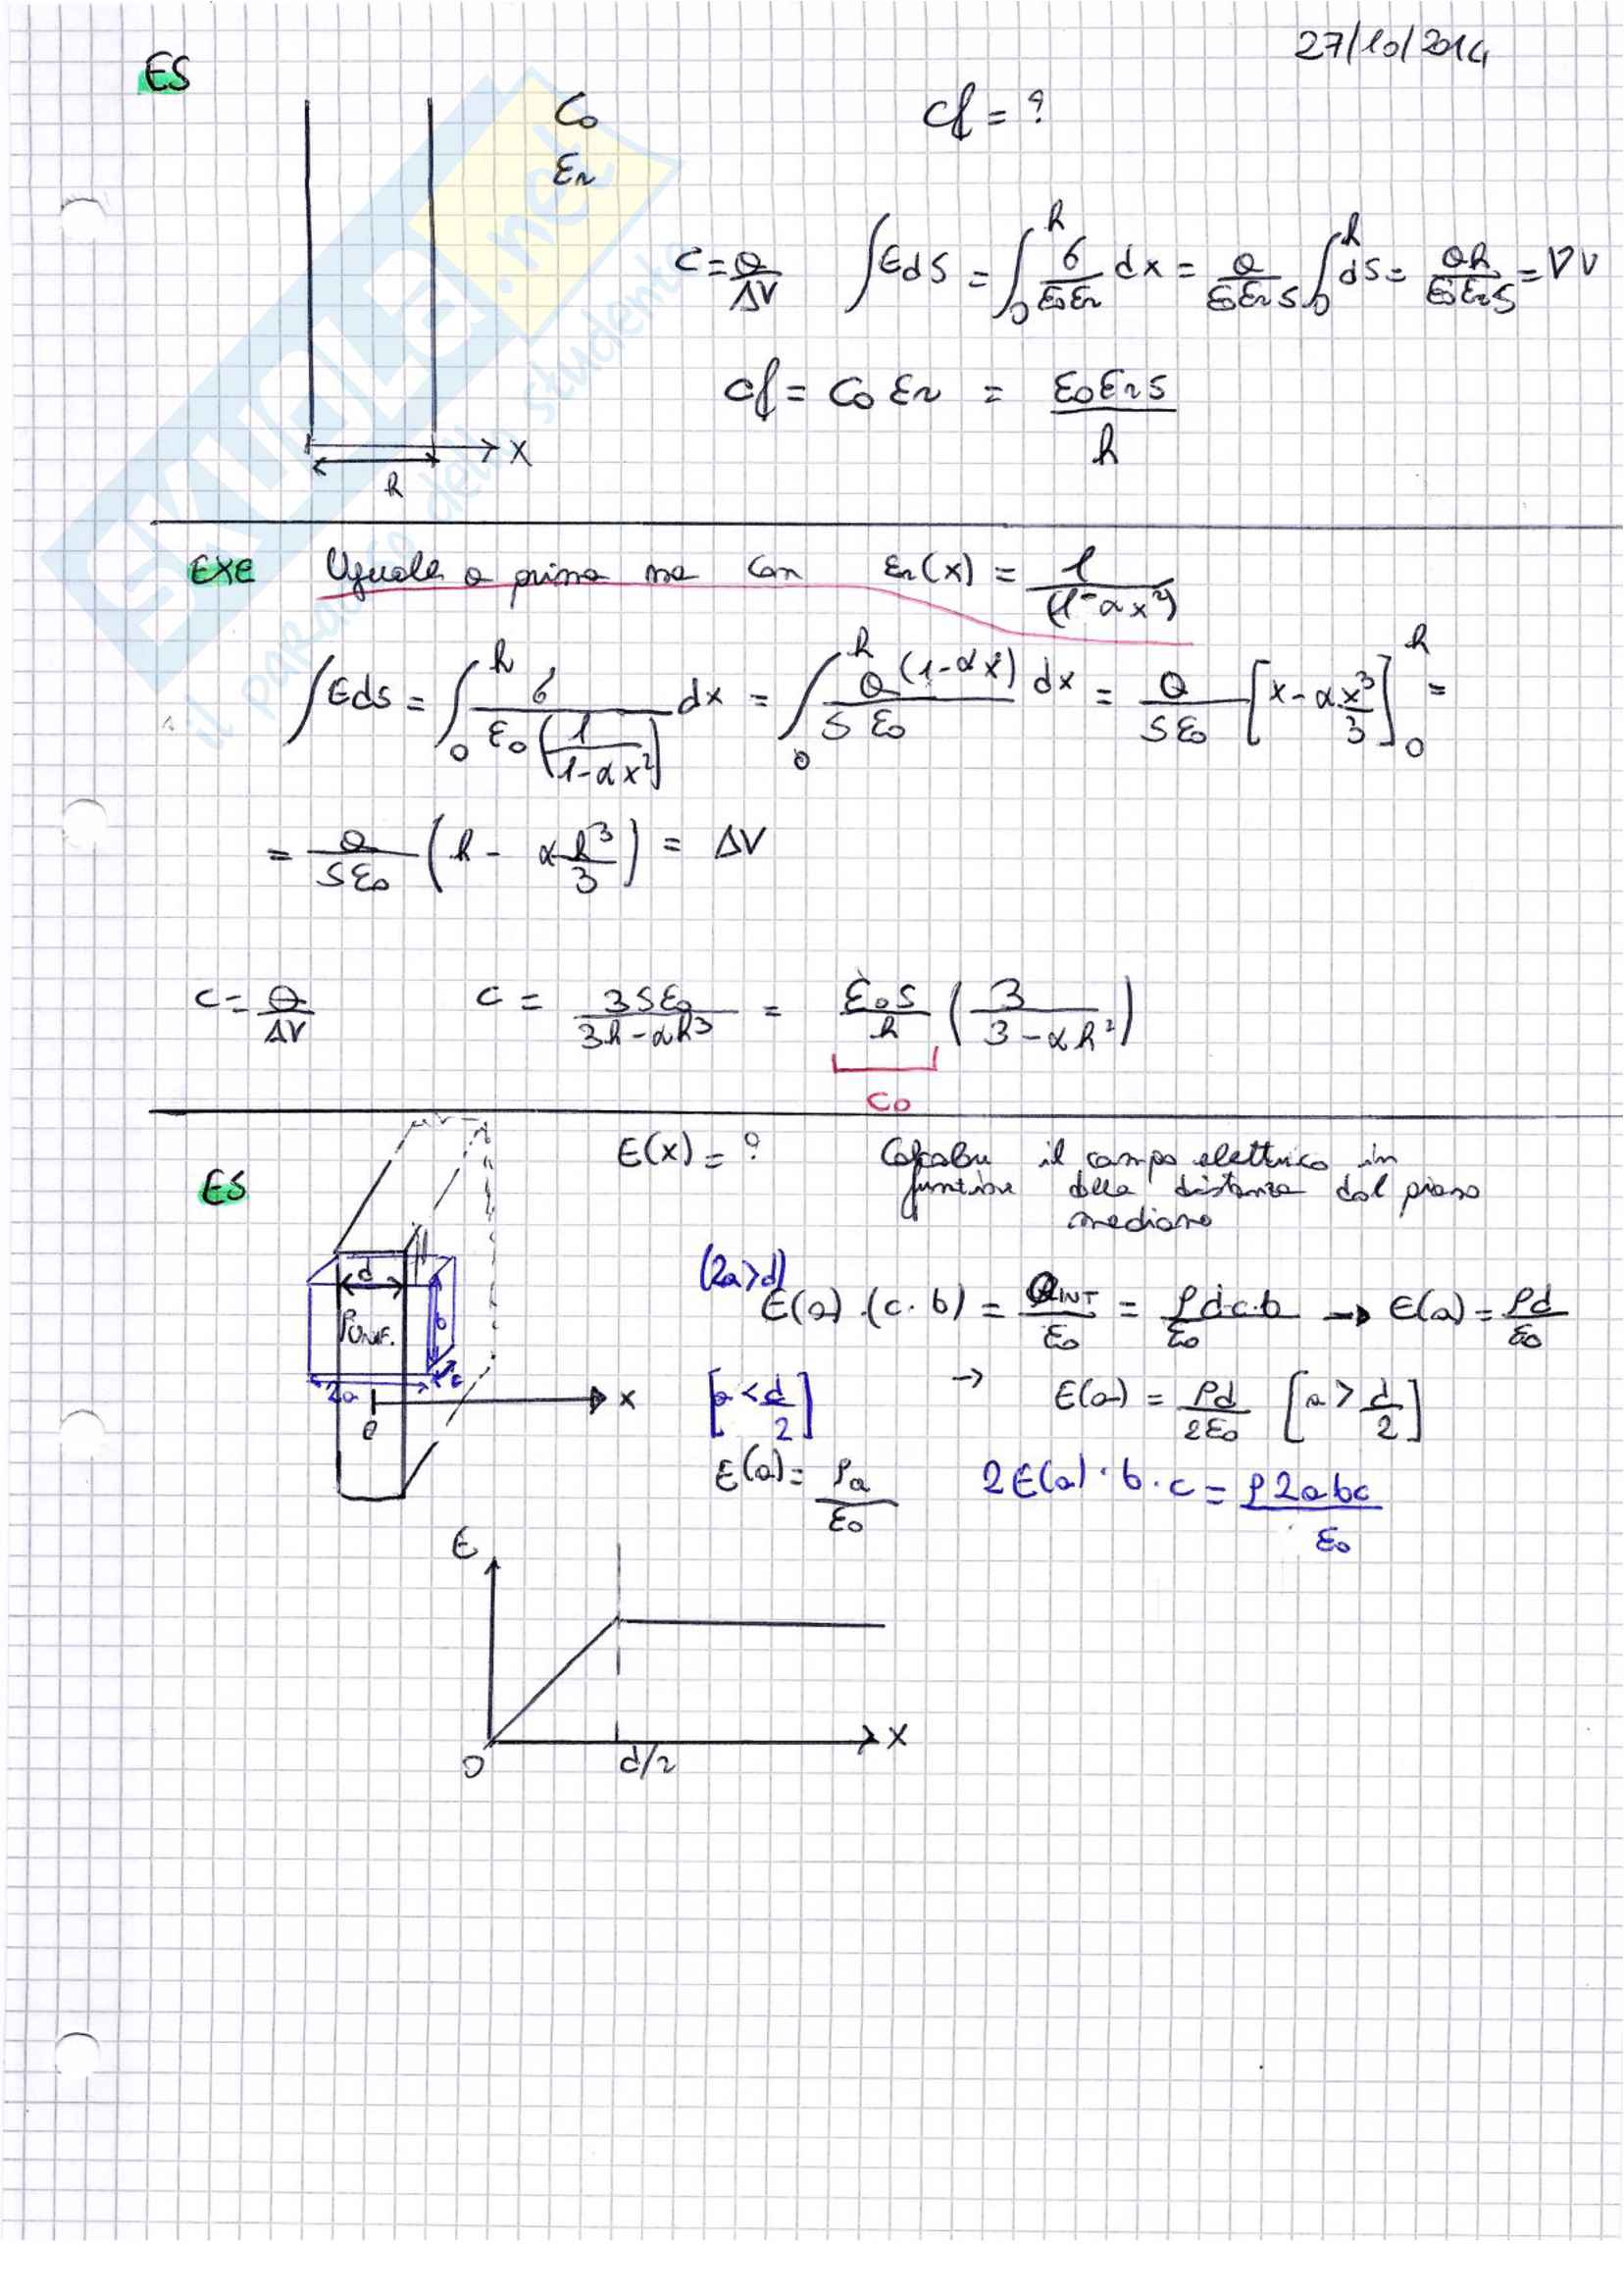 27/10/2014
ES
C₀
εr
Cf = ?
C = Q/ΔV ∫E ds = ∫₀ʰ σ/(ε₀εr) dx = Q/(ε₀εr S) ∫₀ʰ ds = Qh/(ε₀εr S) = ∇V
Cf = C₀ εr = ε₀εr S / h
x
h
EXE Uguale a prima ma con εr(x) = 1/(1-αx²)
∫E ds = ∫₀ʰ σ/(ε₀(1/(1-αx²))) dx = ∫₀ʰ Q(1-αx²)/(Sε₀) dx = Q/(Sε₀) [x - αx³/3]₀ʰ =
= Q/(Sε₀) (h - αh³/3) = ΔV
C = Q/ΔV C = 3Sε₀/(3h-αh³) = ε₀S/h (3/(3-αh²))
C₀
ES
E(x) = ? Calcolare il campo elettrico in
funzione della distanza dal piano
mediano
d
ρUNIF.
b
c
2a
0
x
(2a>d)
E(a)·(c·b) = QINT/ε₀ = ρd·c·b/ε₀ → E(a) = ρd/ε₀
[a < d/2]
→ E(a) = ρd/2ε₀ [a > d/2]
E(a) = ρa/ε₀
2E(a)·b·c = ρ2abc/ε₀
E
0
d/2
x
SKUOLA.net
il paradiso dello studente